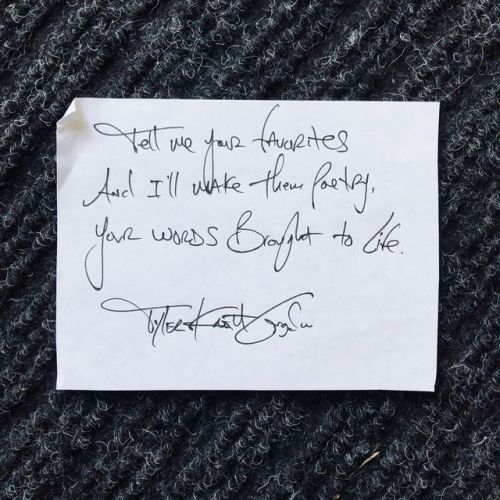 Tell me your favorites
And I'll make them Poetry,
Your words Brought to Life.
Tyler Knott Gregson